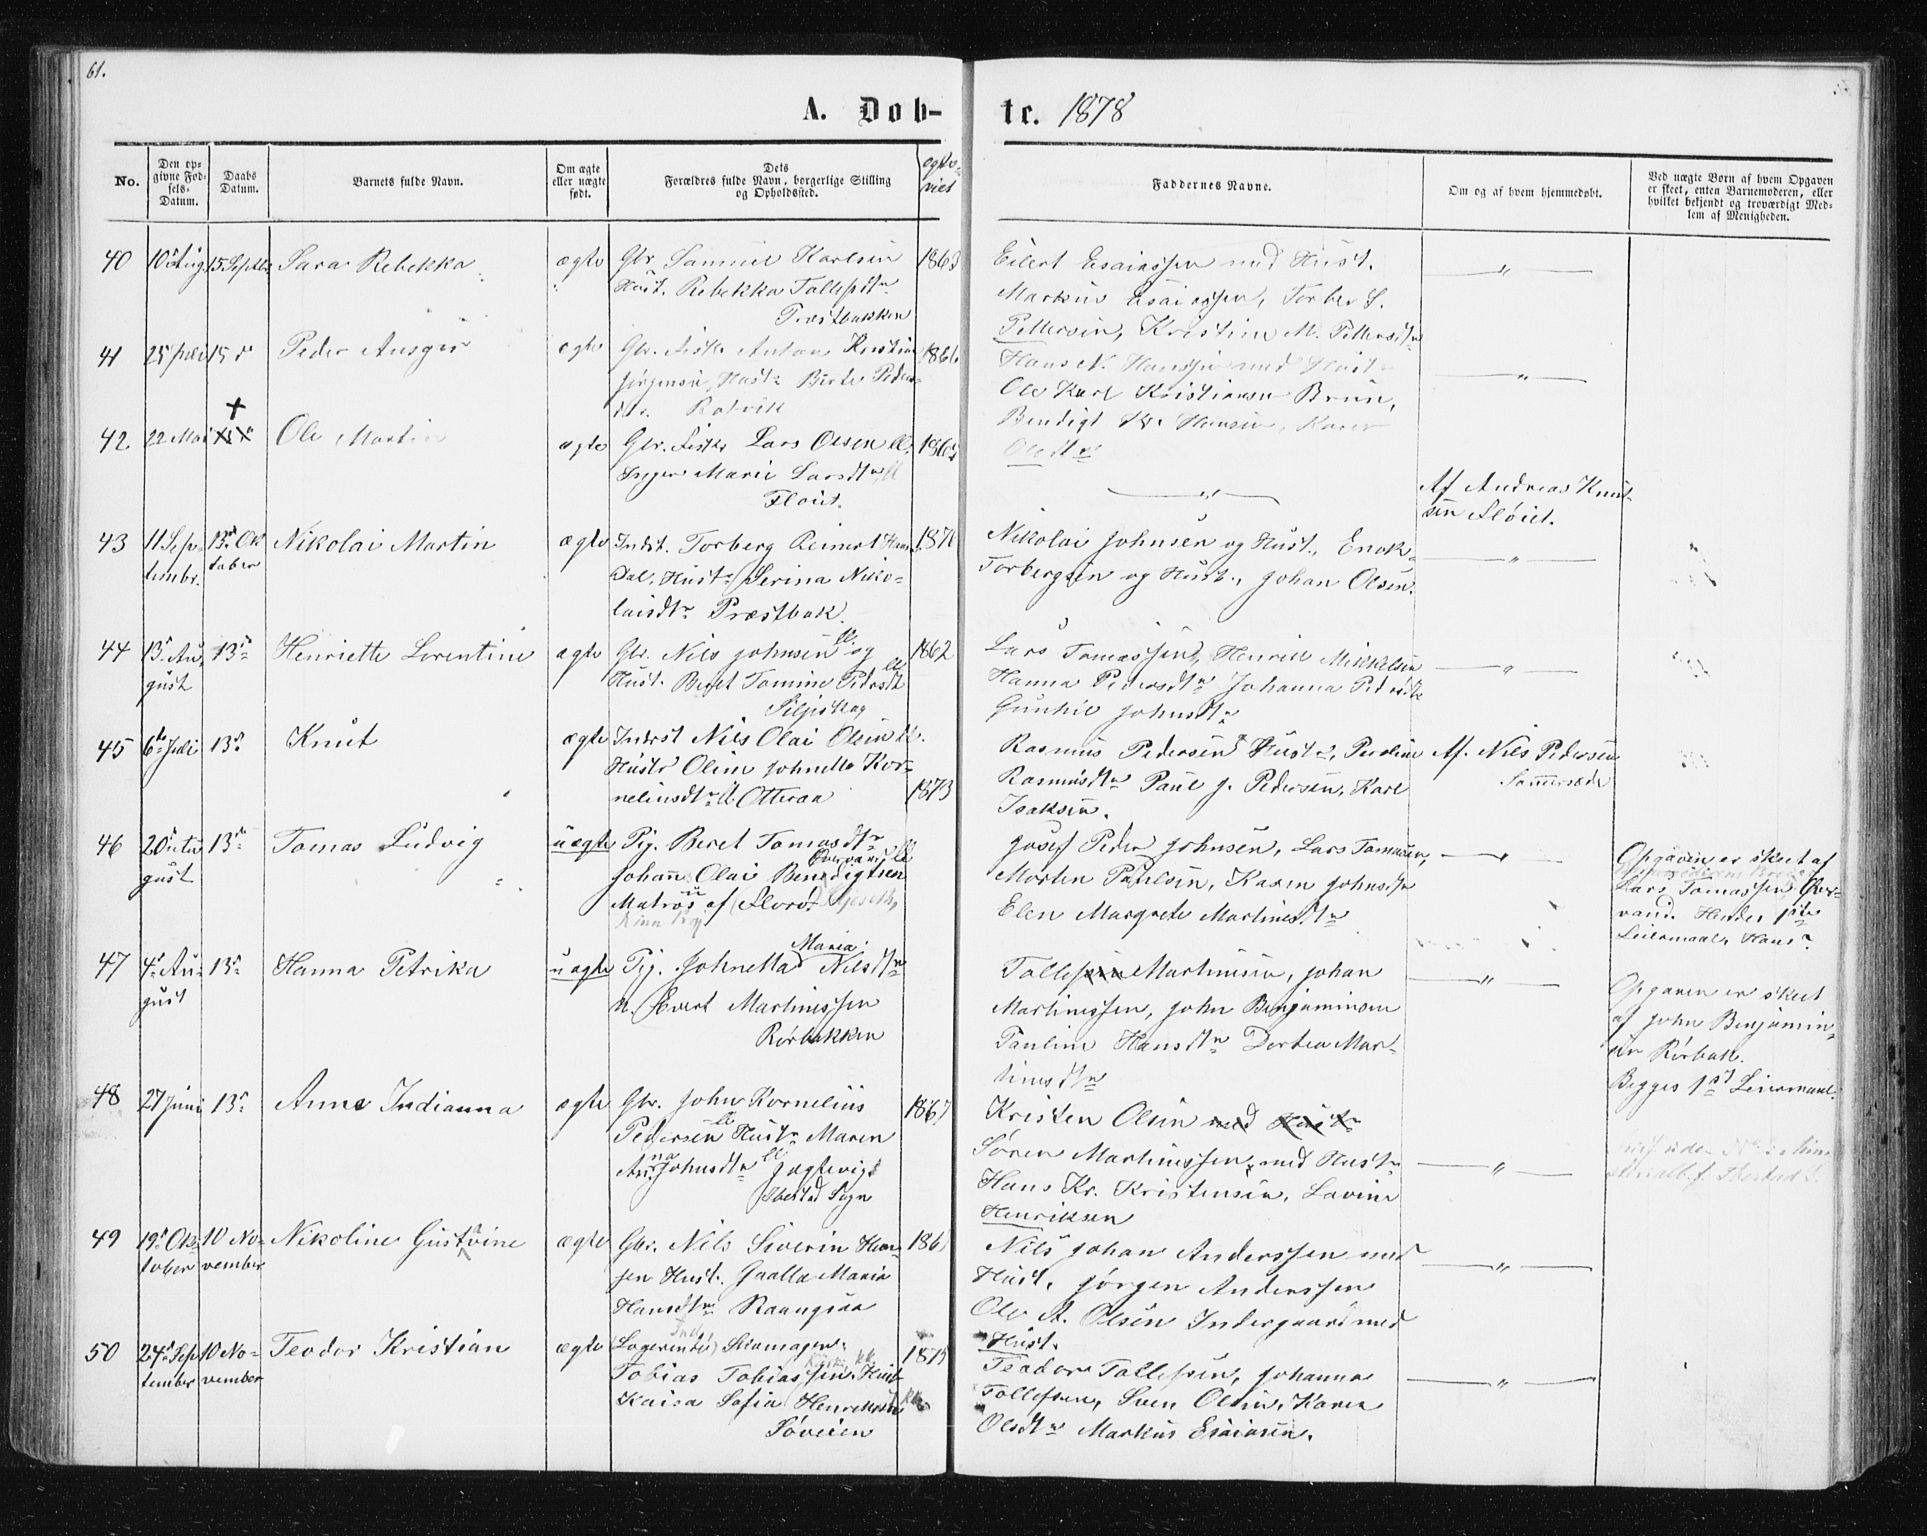 61.
A. Døb-
te. 1878
No.
Den op-
givne Fød-
sels-
Datum.
Daabs
Datum.
Barnets fulde Navn.
Om ægte
eller uægte
født.
Dets
Forældres fulde Navn, borgerlige Stilling
og Opholdssted.
ægte-
viet
Faddernes Navne.
Om og af hvem hjemmedøbt.
Ved uægte Børn af hvem Opgaven
er skeet, enten Barnemoderen, eller
hvilket bekjendt og troværdigt Med-
lem af Menigheden.
40 10 Aug 15 Septbr Sara Rebekka ægte Gbr. Samuel Karlsen 1863
Hust. Rebekka Tollefsdtr
Præstbakken
Eilert Esaiassen med Hust.
Markus Esaiassen, Torber S.
Pettersen, Kristine M. Pettersdtr
41 25 15 Peder Ansgir ægte Gbr. Fisk. Anton Kristian
Jørgensen, Hustr Berte Peder-
dtr. Rotvik
Hans N. Hanssen med Hustr
Ole Karl Kristiansen Brun,
Bendigt Hansen, Karen
Olsdtr
42 22 Mai Ole Martin ægte Gbr. Fisker Lars Olsen
Inger Marie Larsdtr
Fløiet.
"
Af Andreas Knut-
sen Fløiet.
43 11 Sep- 13 Ok- Nikolai Martin ægte Indst. Torberg Reinert Hans 1870
tembr. tober
Dal. Hustr Serina Niko-
laisdtr Præstbak.
Nikolai Johnsen og Hust., Enok
Torbergsen og Hust., Johan Olsen.
44 13 Au- 13 Henriette Lorentine ægte Gbr. Nils Johnsen og 1862
gust
Hust. Beret Tomine Pedersdt
Siljeskog
Lars Tomassen, Henrik Mikkelsen
Hanna Pedersdtr Johanna Pedersdtr
Gunhil Johnsdtr
45 6 Juli 13 Knut ægte Inderst Nils Olai Olsen
Hustr Oline Johnetta Kor-
nelius dtr Otteraa 1873
Rasmus Pedersen Hustr, Pauline
Rasmusdtr Paul J. Pedersen, Karl
Isaksen.
Af. Nils Pedersen
Sommersæde
46 20 Au- 13 Tomas Ludvig uægte Pig. Beret Tomasdtr
gust
Johan Olai Bendigtsen
Matros af Florø
Josef Peder Johnsen, Lars Tomassen,
Morten Paulsen, Karen Johnsdtr
Elen Margrete Martinsdtr
Opgaven er skeet af
Lars Tomassen
vand. Hendes 1ste
Leiermaal, Hans
47 4 Au- 13 Hanna Petrika uægte Pig. Johnetta Maria Nilsdtr
gust
u. Evert Martinussen
Rørbakken
Tollef Martinusen, Johan
Martinussen, John Benjaminsen
Pauline Hansdtr Dortea Mar-
tinusdtr
Opgaven er skeet
af John Benjamin-
sen Rørbak.
Begges 1st Leiermaal.
48 27 Juni 13 Anne Indianna ægte Gbr. John Kornelius 1867
Pedersen Hustr Maren
Anna Johnsdtr Jagtevig
Ibestad Sogn
Kristen Olsen med Hustr
Søren Martinussen med Hustr
Hans Kr. Kristensen, Lavine
Henriksen
49 19 Ok- 10 No- Nikoline Gustavine ægte Gbr. Nils Severin Han-
tober vember
sen Hust. Gjalla Maria
Hansdtr Raangsaa
Nils Johan Anderssen med
Hust. Jørgen Anderssen
Ole A. Olsen Indergaard med
Hust.
50 24 Sep- 10 No- Teodor Kristian ægte (Logerende) Skomager 1875
tember vember
Tobias Tobiassen Hust
Kaisa Sofia Henriksdtr
Søveien
Teodor Tollefsen, Johanna
Tollefsen, Sven Olsen, Karen
Olsdtr Markus Esaiasen.